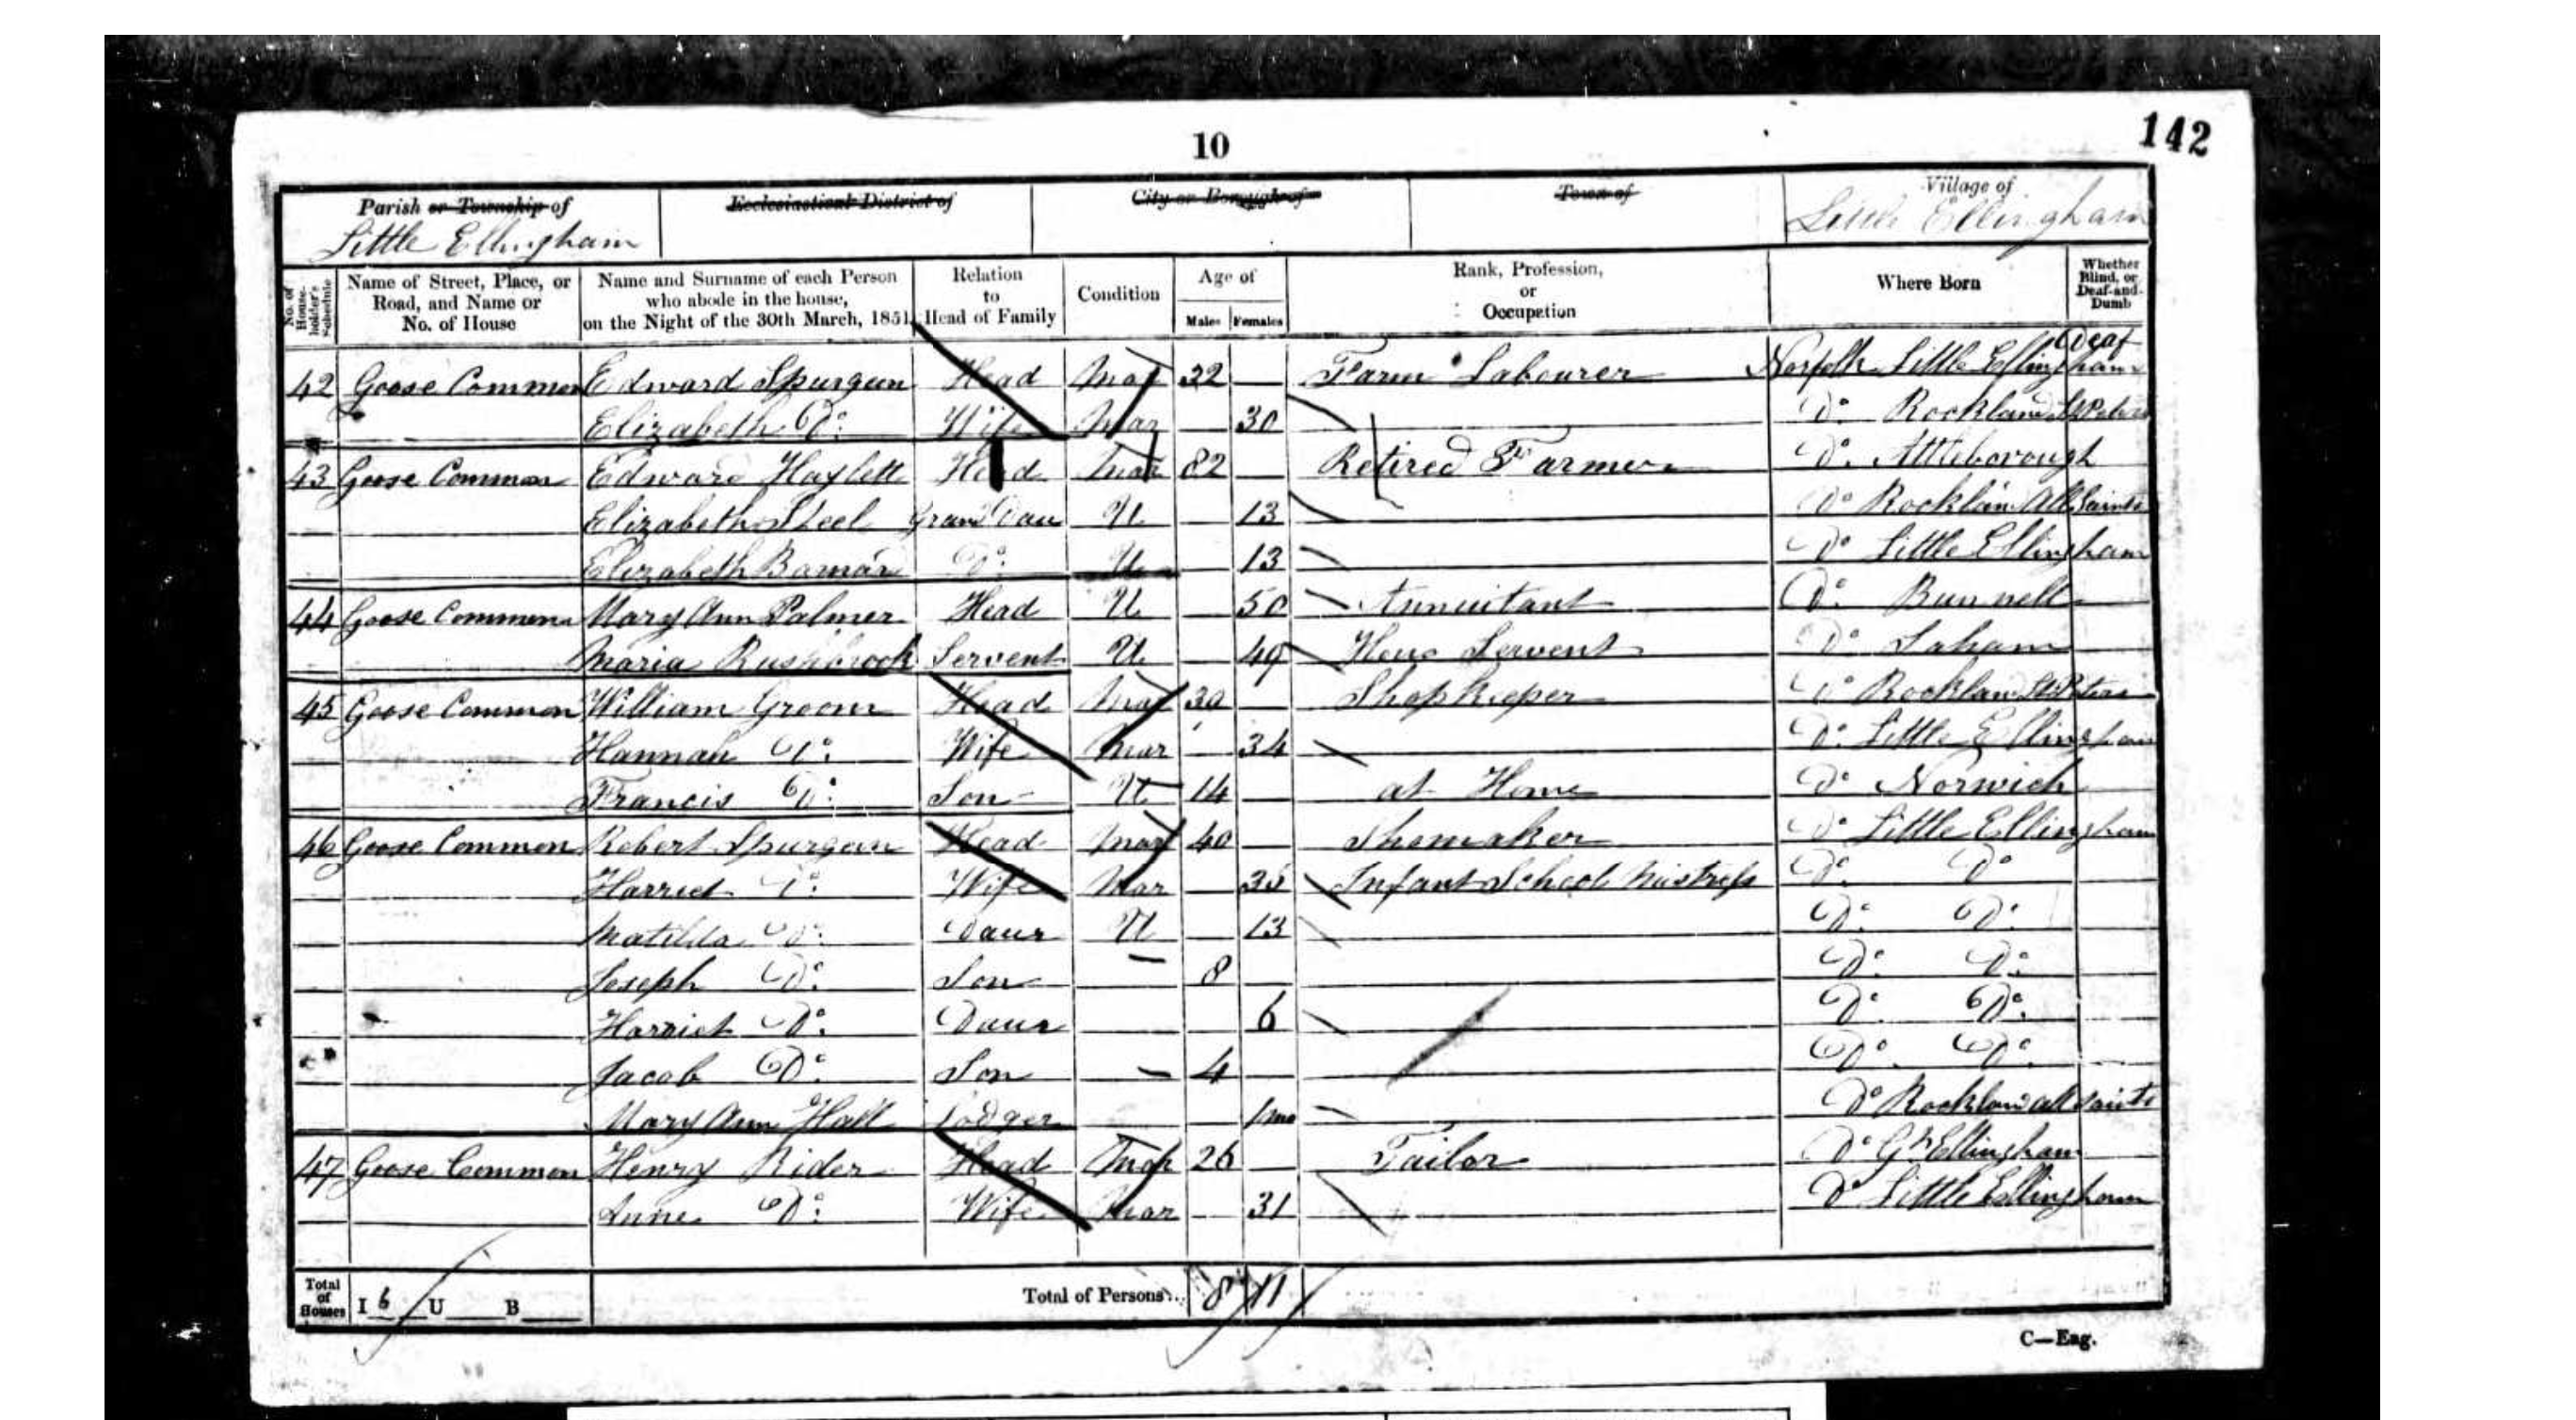 10
142
Parish or Township of
Little Ellingham
Ecclesiastical District of
City or Borough of
Town of
Village of
Little Ellingham
No. of House-holder's Schedule
Name of Street, Place, or Road, and Name or No. of House
Name and Surname of each Person who abode in the house, on the Night of the 30th March, 1851
Relation to Head of Family
Condition
Age of
Males Females
Rank, Profession, or Occupation
Where Born
Whether Blind, or Deaf-and-Dumb
42 Goose Common Edward Spurgeon Head Mar 32 Farm Labourer Norfolk Little Ellingham Deaf
Elizabeth Do: Wife Mar 30 Do. Rockland St Peters
43 Goose Common Edward Haylett Head Mar 82 Retired Farmer Do. Attleborough
Elizabeth Steel Grand Dau U 13 Do Rocklan All Saints
Elizabeth Do: U 13 Do Little Ellingham
44 Goose Common Mary Ann Palmer Head U 50 Annuitant Do. Bunnell
Maria Rushbrook Servent U 49 Servent Do Saham
45 Goose Common William Groom Head Mar Shopkeeper Do Rocklan St Peters
Hannah Do: Wife Mar 34 Do. Little Ellingham
Francis Do: Son U 14 at Home Do Norwich
46 Goose Common Robert Spurgeon Head Mar 40 Shomaker Do Little Ellingham
Harriet Do: Wife Mar 35 Infant School Mistress Do Do
Matilda Do: Daur U 13 Do. Do.
Joseph Do: Son 8 Do. Do.
Harriet Do. Daur 6 Do. Do.
Jacob Do. Son 4 Do. Do.
Mary Ann Hall Lodger 1mo Do Rockland all saints
47 Goose Common Henry Rider Head Mar 26 Tailor Do Gt Ellingham
Anne Do: Wife Mar 31 Do Little Ellingham
Total of Houses I 6 U B Total of Persons... 8 11
C—Eng.